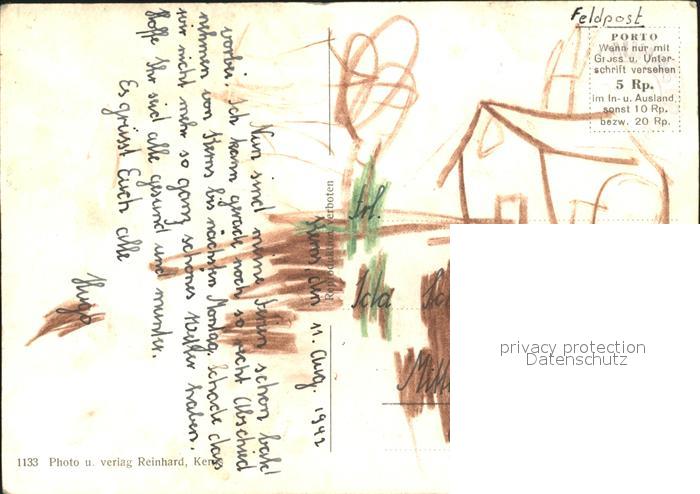 Feldpost
PORTO
Wenn nur mit
Gruss u. Unter-
schrift versehen
5 Rp.
im In- u. Ausland,
sonst 10 Rp.
bezw. 20 Rp.
Kerns, den 11. Aug. 1942
Nun sind meine Ferien schon bald
vorbei. Ich kann gerade noch so recht Abschied
nehmen von Kerns bis nächsten Montag. Schade dass
wir nicht mehr so ganz schönes Wetter haben.
Hoffe Ihr seid alle gesund und munter.
Es grüsst Euch alle
Hugo
Reproduktion verboten
Frl.
Ida
Mitt
privacy protection
Datenschutz
1133 Photo u. verlag Reinhard, Kerns